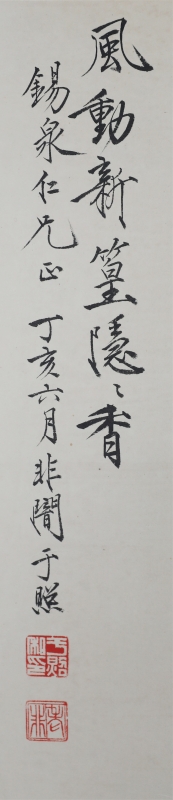 風動新〻篁隱〻香
錫泉仁兄正 丁亥六月非闇于照